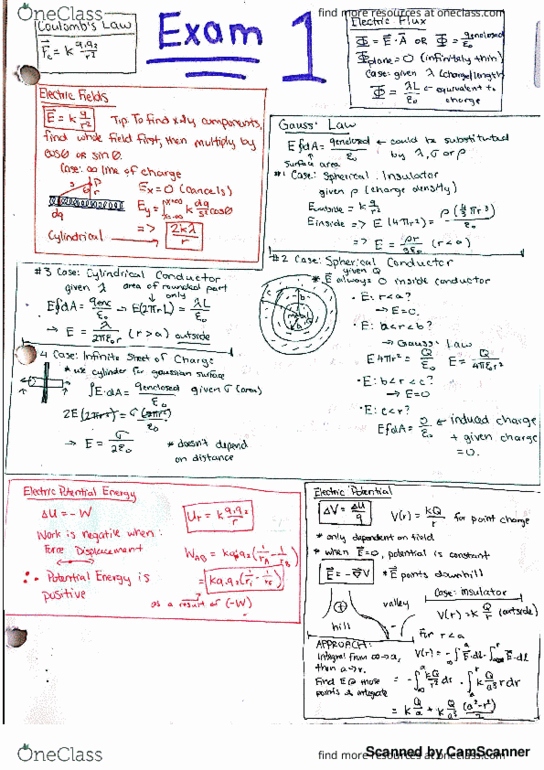 OneClass
find more resources at oneclass.com
Coulomb's Law
F = k q₁q₂/r²
Exam 1
Electric Flux
Φ = E · A OR Φ = qenclosed/ε₀
Φplane = 0 (infinitely thin)
Case: given λ (charge/length)
Φ = λL/ε₀ ← equivalent to charge
Electric Fields
E = k q/r²
Tip: To find x,y components,
find whole field first, then multiply by
cosθ or sinθ.
Case: ∞ line of charge
P
r
dq
Ex = 0 (cancels)
Cylindrical
=> 2kλ/r
Gauss' Law
E∮dA = qenclosed/ε₀ ← could be substituted
by λ, σ or ρ
surface area
#1 Case: Spherical Insulator
given ρ (charge density)
Eoutside = k q/r²
Einside => E(4πr²) = ρ(4/3πr³)/ε₀
=> E = ρr/3ε₀ (r<a)
#2 Case: Spherical Conductor
given Q
* E always 0 inside conductor
• E: r<a?
→ E=0.
• E: a<r<b?
→ Gauss' Law
E4πr² = Q/ε₀ E = Q/4πε₀r²
• E: b<r<c?
→ E=0
• E: c<r?
← induced charge
+ given charge
= 0.
#3 Case: Cylindrical Conductor
given λ area of rounded part
only
E∮dA = qenc/ε₀ → E(2πrL) = λL/ε₀
→ E = λ/2πε₀r (r>a) outside
4 Case: Infinite Sheet of Charge
* use cylinder for gaussian surface
∫E·dA = qenclosed/ε₀ given σ (area)
2E(2πr²) = σ(2πr²)/ε₀
→ E = σ/2ε₀
* doesn't depend
on distance
Electric Potential Energy
ΔU = -W
Ur = kq₁q₂/r
Work is negative when:
Force Displacement
WAB = kq₁q₂(1/rA - 1/rB)
= kq₁q₂(1/r₁ - 1/r₂)
∴ Potential Energy is
positive
as a result of (-W)
Electric Potential
ΔV = ΔU/q
V(r) = kQ/r for point charge
* only dependent on field
* when E=0, potential is constant
E = -∇V
* E points downhill
+
hill
valley
-
Case: insulator
V(r) = k Q/r (outside)
for r<a
V(r) = -∫E·dL - ∫E·dL
APPROACH:
Integral from ∞→a,
then a→r.
Find E @ those
points & integrate
= -∫kQ/r² dr - ∫kQ/a³ r dr
= k Q/a + k Q/a³ (a²-r²)/2
OneClass
find more resources at oneclass.com
Scanned by CamScanner